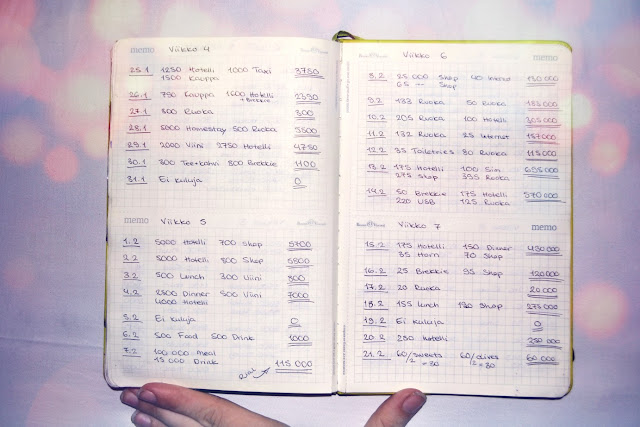 memo Viikko 4
25.1 1250 Hotelli 1000 Taxi 3750
1500 Kauppa
26.1 750 Kauppa 1600 Hotelli 2350
+Brekkie
27.1 300 Ruoka 300
28.1 5000 Homestay 500 Ruoka 5500
29.1 2000 Viini 2750 Hotelli 4750
30.1 300 Tee+kahvi 800 Brekkie 1100
31.1 Ei kuluja 0
memo Viikko 5
1.2 5000 Hotelli 700 Shop 5700
2.2 5000 Hotelli 800 Shop 5800
3.2 500 Lunch 300 Viini 800
4.2 2500 Dinner 500 Viini 7000
4000 Hotelli
5.2 Ei kuluja 0
6.2 500 Food 500 Drink 1000
7.2 100 000 Meal
15 000 Drink 115 000
Viikko 6 memo
8.2 25 000 Shop 40 130 000
65 Shop
9.2 133 Ruoka 50 Ruoka 183 000
10.2 205 Ruoka 100 Hotelli 305 000
11.2 132 Ruoka 25 Internet 157 000
12.2 35 Toiletries 80 Ruoka 115 000
13.2 175 Hotelli 100 Sim
275 Shop 355 Ruoka
14.2 50 Brekkie 175 Hotelli 570 000
220 USB 125 Ruoka
Viikko 7 memo
15.2 175 Hotelli 150 Dinner 430 000
35 Horn 70 Shop
16.2 25 Brekkies 95 Shop 120 000
17.2 20 Ruoka 20 000
18.2 155 Lunch 120 Shop 275 000
19.2 Ei kuluja 0
20.2 250 Hotelli 250 000
21.2 60/sweets 60/olives 60 000
/2 =30 /2 =30